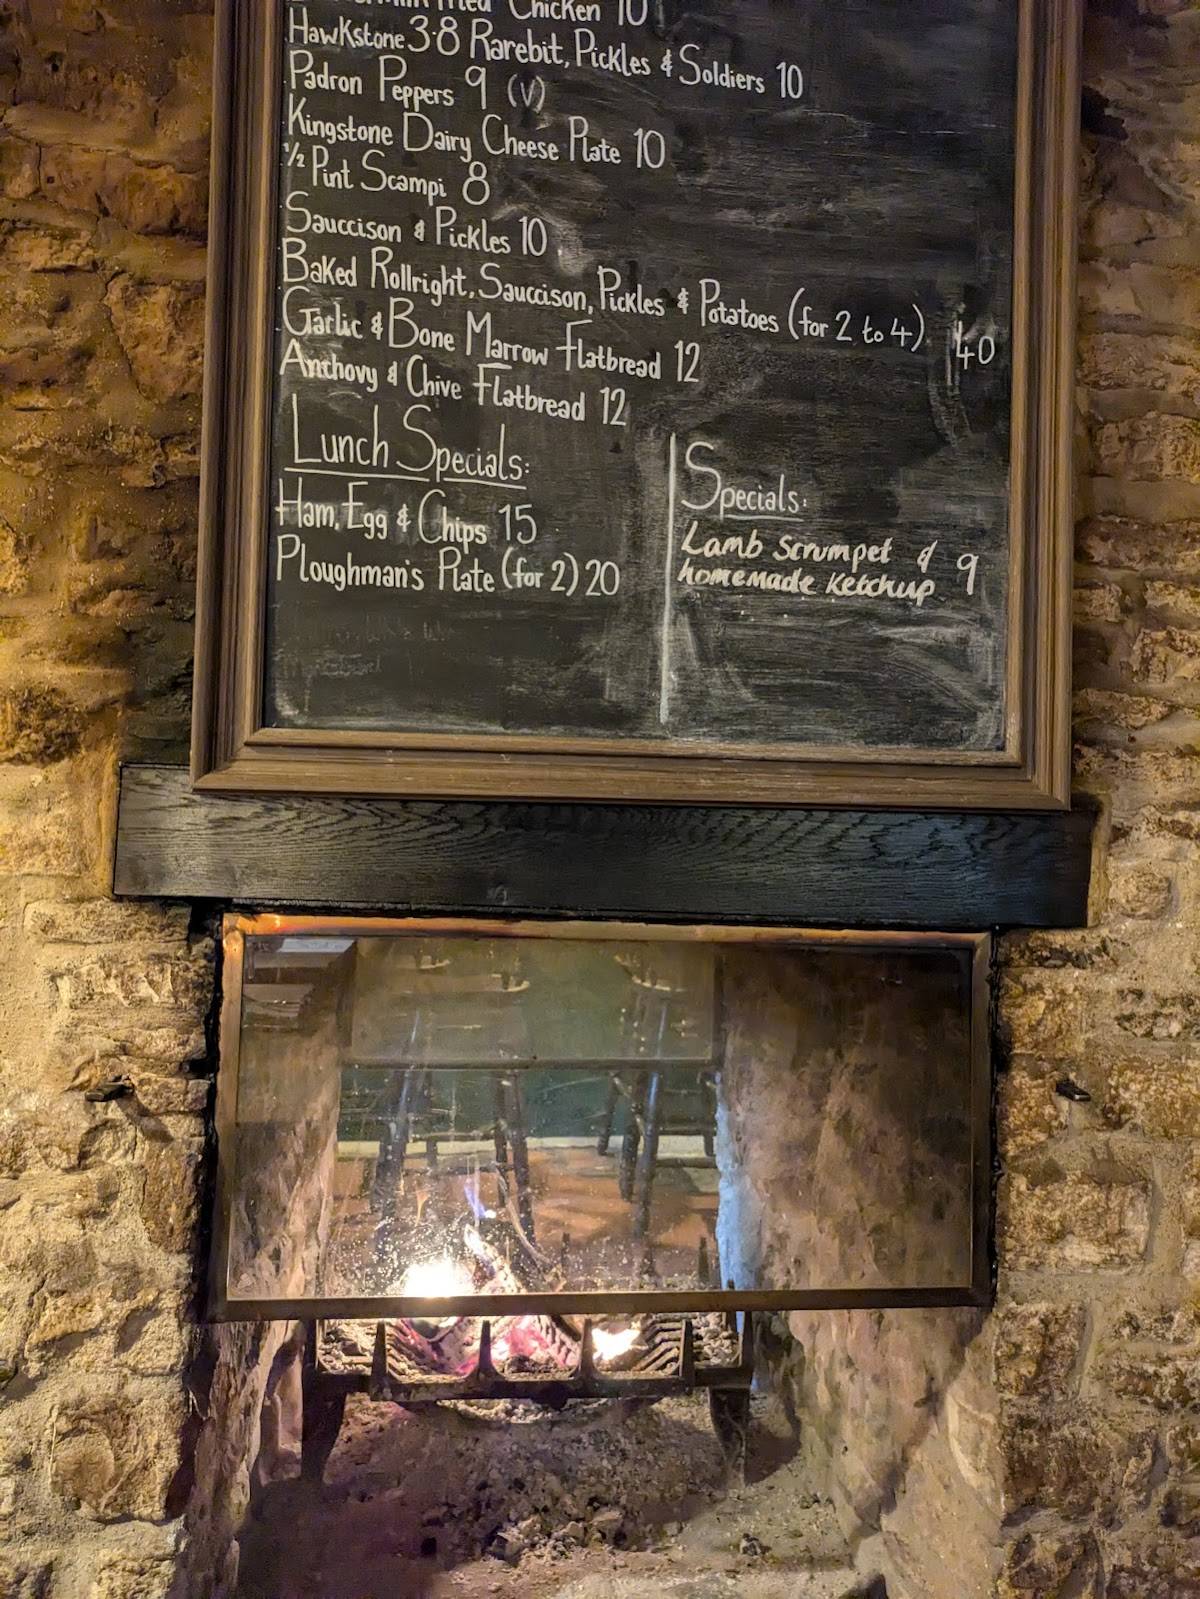 Fried Chicken 10
Hawkstone 3.8 Rarebit, Pickles & Soldiers 10
Padron Peppers 9 (V)
Kingstone Dairy Cheese Plate 10
1/2 Pint Scampi 8
Sauccison & Pickles 10
Baked Rollright, Sauccison, Pickles & Potatoes (for 2 to 4) 40
Garlic & Bone Marrow Flatbread 12
Anchovy & Chive Flatbread 12
Lunch Specials:
Ham, Egg & Chips 15
Ploughman's Plate (for 2) 20
Specials:
Lamb Scrumpet & 9
homemade Ketchup